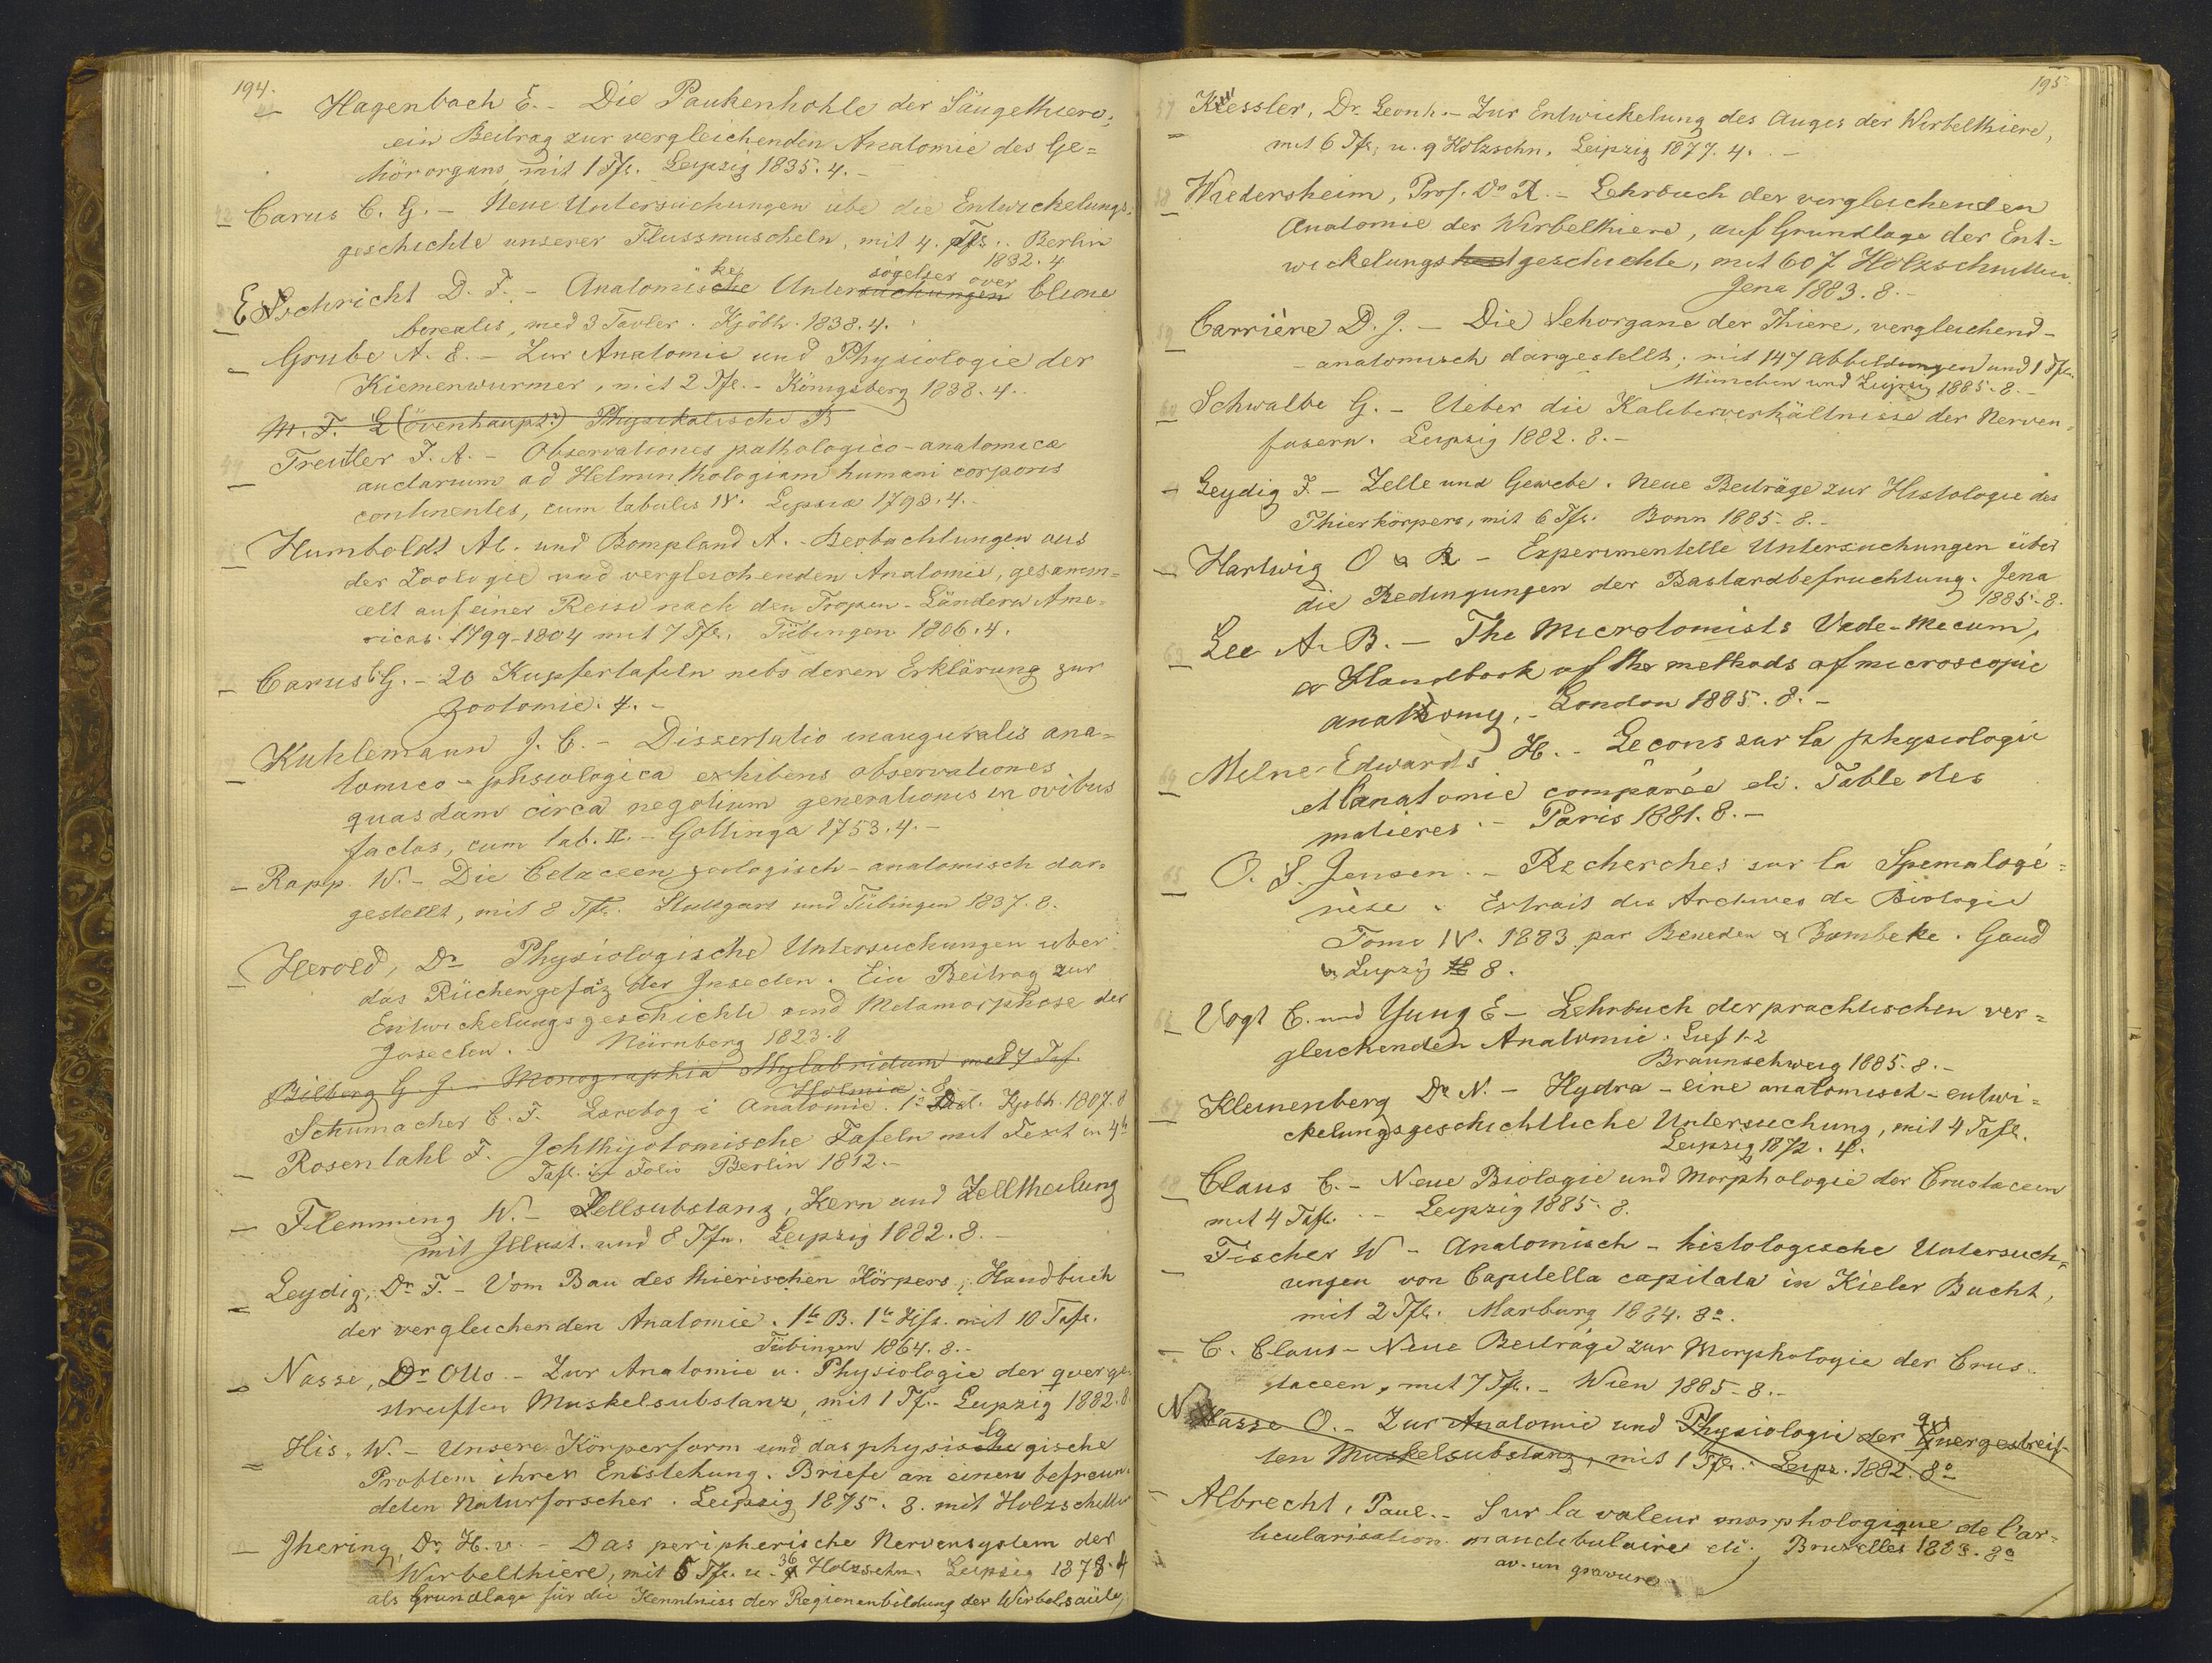 194.
Hagenbach E. - Die Paukenhohle der Säugethiere,
ein Beitrag zur vergleichenden Anatomie des Ge=
hörorgans, mit 1 Tfl. Leipzig 1835. 4. -
42 Carus C. G. - Neue Untersuchungen ube die Entwickelungs=
geschichte unserer Flussmuscheln, mit 4. Tfl. Berlin
1832. 4
Eschricht D. F. - Anatomiske Undersøgelser over Clione
borealis, med 3 Tavler. Kjöbh. 1838. 4.
Grube A. E. - Zur Anatomie und Physiologie der
Kiemenwurmer, mit 2 Tfl. - Königsberg 1838. 4.
M. F. L (övenhaupt?) Physikalische B
44 Treutler F. A. - Observationes pathologico-anatomicæ
auctarium ad Helminthologiam humani corporis
continentes, cum tabulis IV. Lipsiæ 1793. 4. -
Humboldt Al. und Bompland A. - Beobachtungen aus
der Zoologie und vergleichenden Anatomie, gesamm=
elt auf einer Reise nach den Tropen-Ländern Ame=
ricas. 1799-1804 mit 7 Tfl. Tübingen 1806. 4.
Carus C G. - 20 Kupfertafeln nebs deren Erklärung zur
Zootomie. 4. -
Kuhlemann J. C. - Dissertatio inauguralis ana=
tomico-phsiologica exhibens observationes
quasdam circa negotium generationis in ovibus
factas, cum tab. II. - Gottinga 1753. 4. -
Rapp. W. - Die Cetaceen zoologisch-anatomisch dar=
gestellt, mit 8 Tfl. Stuttgart und Tübingen 1837. 8.
Herold, Dr Physiologische Untersuchungen uber
das Rückengefäz der Insecten. Ein Beitrag zur
Entwickelungsgeschichte und Metamorphose der
Insecten. - Nürnberg 1823. 8
Bilberg G J. - Monographia Mylabridum med 7 Taf.
Holmiæ. 8.
Schumacher C. F. Lærebog i Anatomie. 1e Deel. Kjobh. 1807. 8
Rosentahl F. Ichthyotomische Tafeln mit Text in 4to
Tafl. in Folio Berlin 1812. -
Flemming W. - Zellsubstanz, Kern und Zelltheilung
mit Illust. und 8 Tfn. Leipzig 1882. 8. -
Leydig, Dr F. - Vom Bau des thierischen Körpers, Handbuch
der vergleichenden Anatomie. 1te B. 1te Hft. mit 10 Tafl.
Tübingen 1864. 8. -
Nasse, Dr Otto. - Zur Anatomie u. Physiologie der querge-
streiften Muskelsubstanz, mit 1 Tf. - Leipzig 1882. 8.
His, W. - Unsere Körperform und das physiologische
Problem ihrer Entstehung. Briefe an einen befreun-
deten Naturforscher. Leipzig 1875. 8. mit Holzschitter
Jhering, Dr. H. v. - Das peripherische Nervensystem der
Wirbelthiere, mit 5 Tfl. u. 36 Holzschn. Leipzig 1878. 4
als Grundlage für die Kenntniss der Regionenbildung der Wirbelsäule,
195
57 Kessler, Dr. Leonh. - Zur Entwickelung des Auges der Wirbelthiere,
mit 6 Tfl, u. 9 Holzschn. Leipzig 1877. 4. -
58 Wiedersheim, Prof. Dr R. - Lehrbuch der vergleichenden
Anatomie der Wirbelthiere, auf Grundlage der Ent=
wickelungsgeschichte, mit 607 Holzschnitten
Jena 1883. 8. -
59 Carrière D. J. - Die Sehorgane der Thiere, vergleichend-
- anatomisch dargestellt, mit 147 Abbildungen und 1 Tfl.
München und Leipzig 1885. 8. -
60 Schwalbe G. - Ueber die Kaliberverhältnisse der Nerven=
fasern. Leipzig 1882. 8. -
Leydig F. - Zelle und Gewebe. Neue Beiträge zur Histologie des
Thierkörpers, mit 6 Tfl. Bonn 1885. 8. -
Hartwig O & R - Experimentelle Untersuchungen über
die Bedingungen der Bastardbefruchtung. Jena
1885. 8.
63 Lee A. B. - The Microtomists Vade-Mecum,
a Handbook of the methods of microscopic
anatomy, - London 1885. 8. -
64 Melne-Edwards H. - Lecons sur la physiologie
et lanatomie comparée etc. Table des
matieres. - Paris 1881. 8. -
65 O. S. Jensen. - Recherches sur la Spematogé=
nèse. Extrait des Archives de Biologie
Tome IV. 1883 par Beneden & Bambeke. Gand
& Leipzig 8.
66 Vogt C. und Yung E - Lehrbuch der practischen ver=
gleichenden Anatomie. Lief 1-2
Braunschweig 1885. 8. -
67 Kleinenberg Dr N. - Hydra - eine anatomisch-entwi=
ckelungsgeschichtliche Untersuchung, mit 4 Tafl.
Leipzig 1872. 4.
68 Claus C. - Neue Biologie und Morphologie der Crustaceen
mit 4 Tafl. - Leipzig 1885. 8.
Fischer W - Anatomisch-histologische Untersuch=
ungen von Capitella capitata in Kieler Bucht,
mit 2 Tfl. Marburg 1884. 8o.
C. Claus - Neue Beiträge zur Morphologie der Crus-
taceen, mit 7 Tfl. - Wien 1885. 8. -
Nasse O. - Zur Anatomie und Physiologie der quergestreif-
ten Muskelsubstanz, mit 1 Tfl. Leipz. 1882. 8o
Albrecht, Paul. - Sur la valeur morphologique de l'ar-
ticularisation mandibulaire etc. Bruxelles 1883. 8o
av. un gravure.